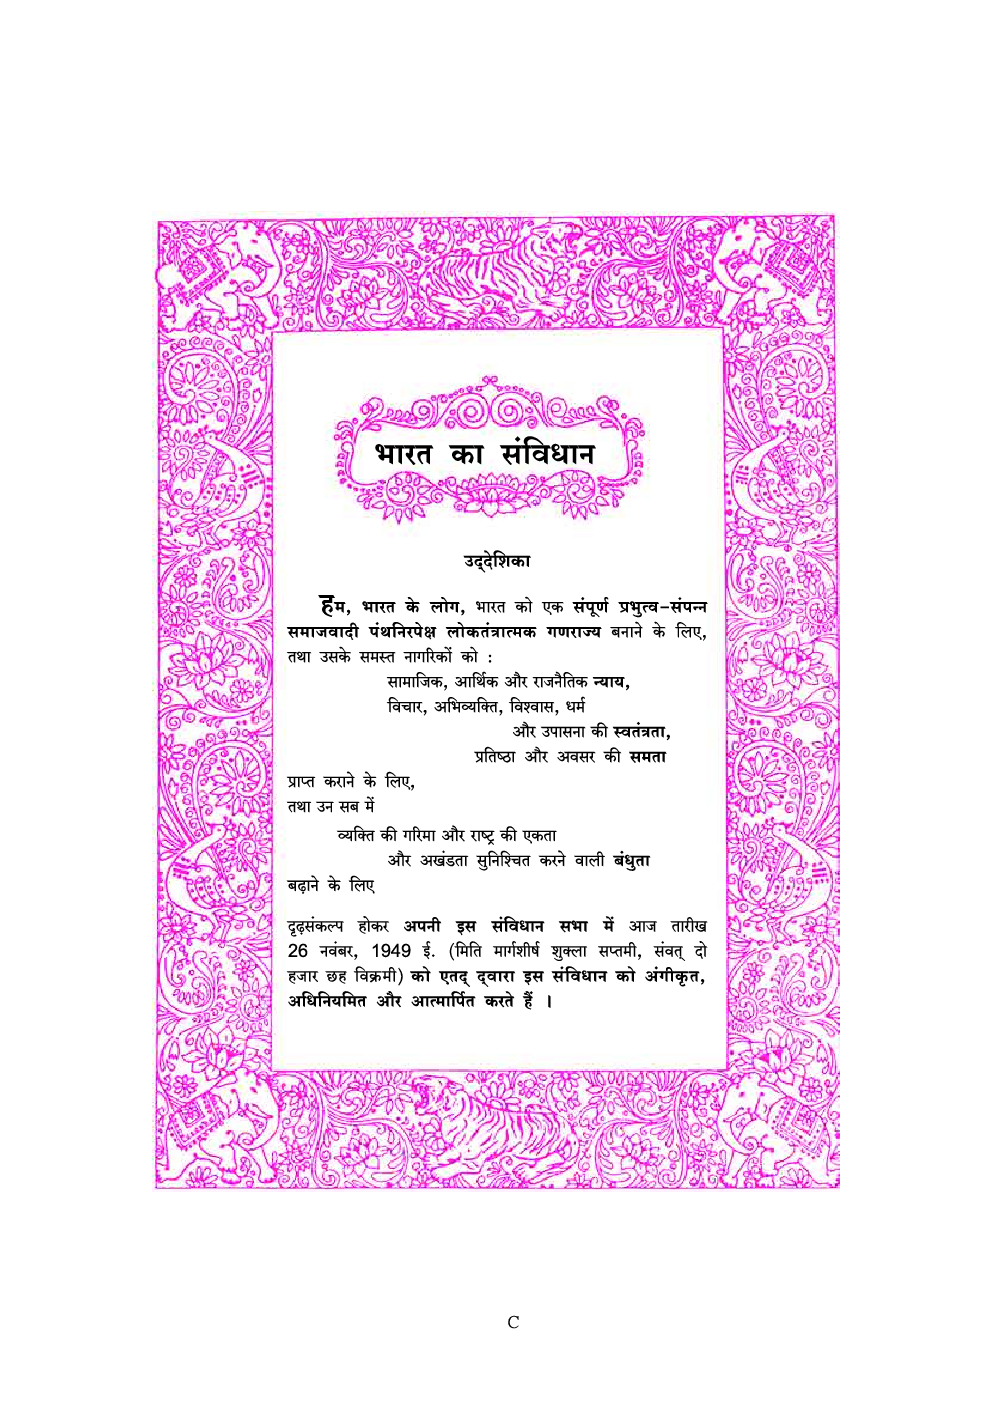 भारत का संविधान
उद्देशिका
हम, भारत के लोग, भारत को एक संपूर्ण प्रभुत्व-संपन्न
समाजवादी पंथनिरपेक्ष लोकतंत्रात्मक गणराज्य बनाने के लिए,
तथा उसके समस्त नागरिकों को :
सामाजिक, आर्थिक और राजनैतिक न्याय,
विचार, अभिव्यक्ति, विश्वास, धर्म
और उपासना की स्वतंत्रता,
प्रतिष्ठा और अवसर की समता
प्राप्त कराने के लिए,
तथा उन सब में
व्यक्ति की गरिमा और राष्ट्र की एकता
और अखंडता सुनिश्चित करने वाली बंधुता
बढ़ाने के लिए
दृढ़संकल्प होकर अपनी इस संविधान सभा में आज तारीख
26 नवंबर, 1949 ई. (मिति मार्गशीर्ष शुक्ला सप्तमी, संवत् दो
हजार छह विक्रमी) को एतद् द्वारा इस संविधान को अंगीकृत,
अधिनियमित और आत्मार्पित करते हैं ।
C